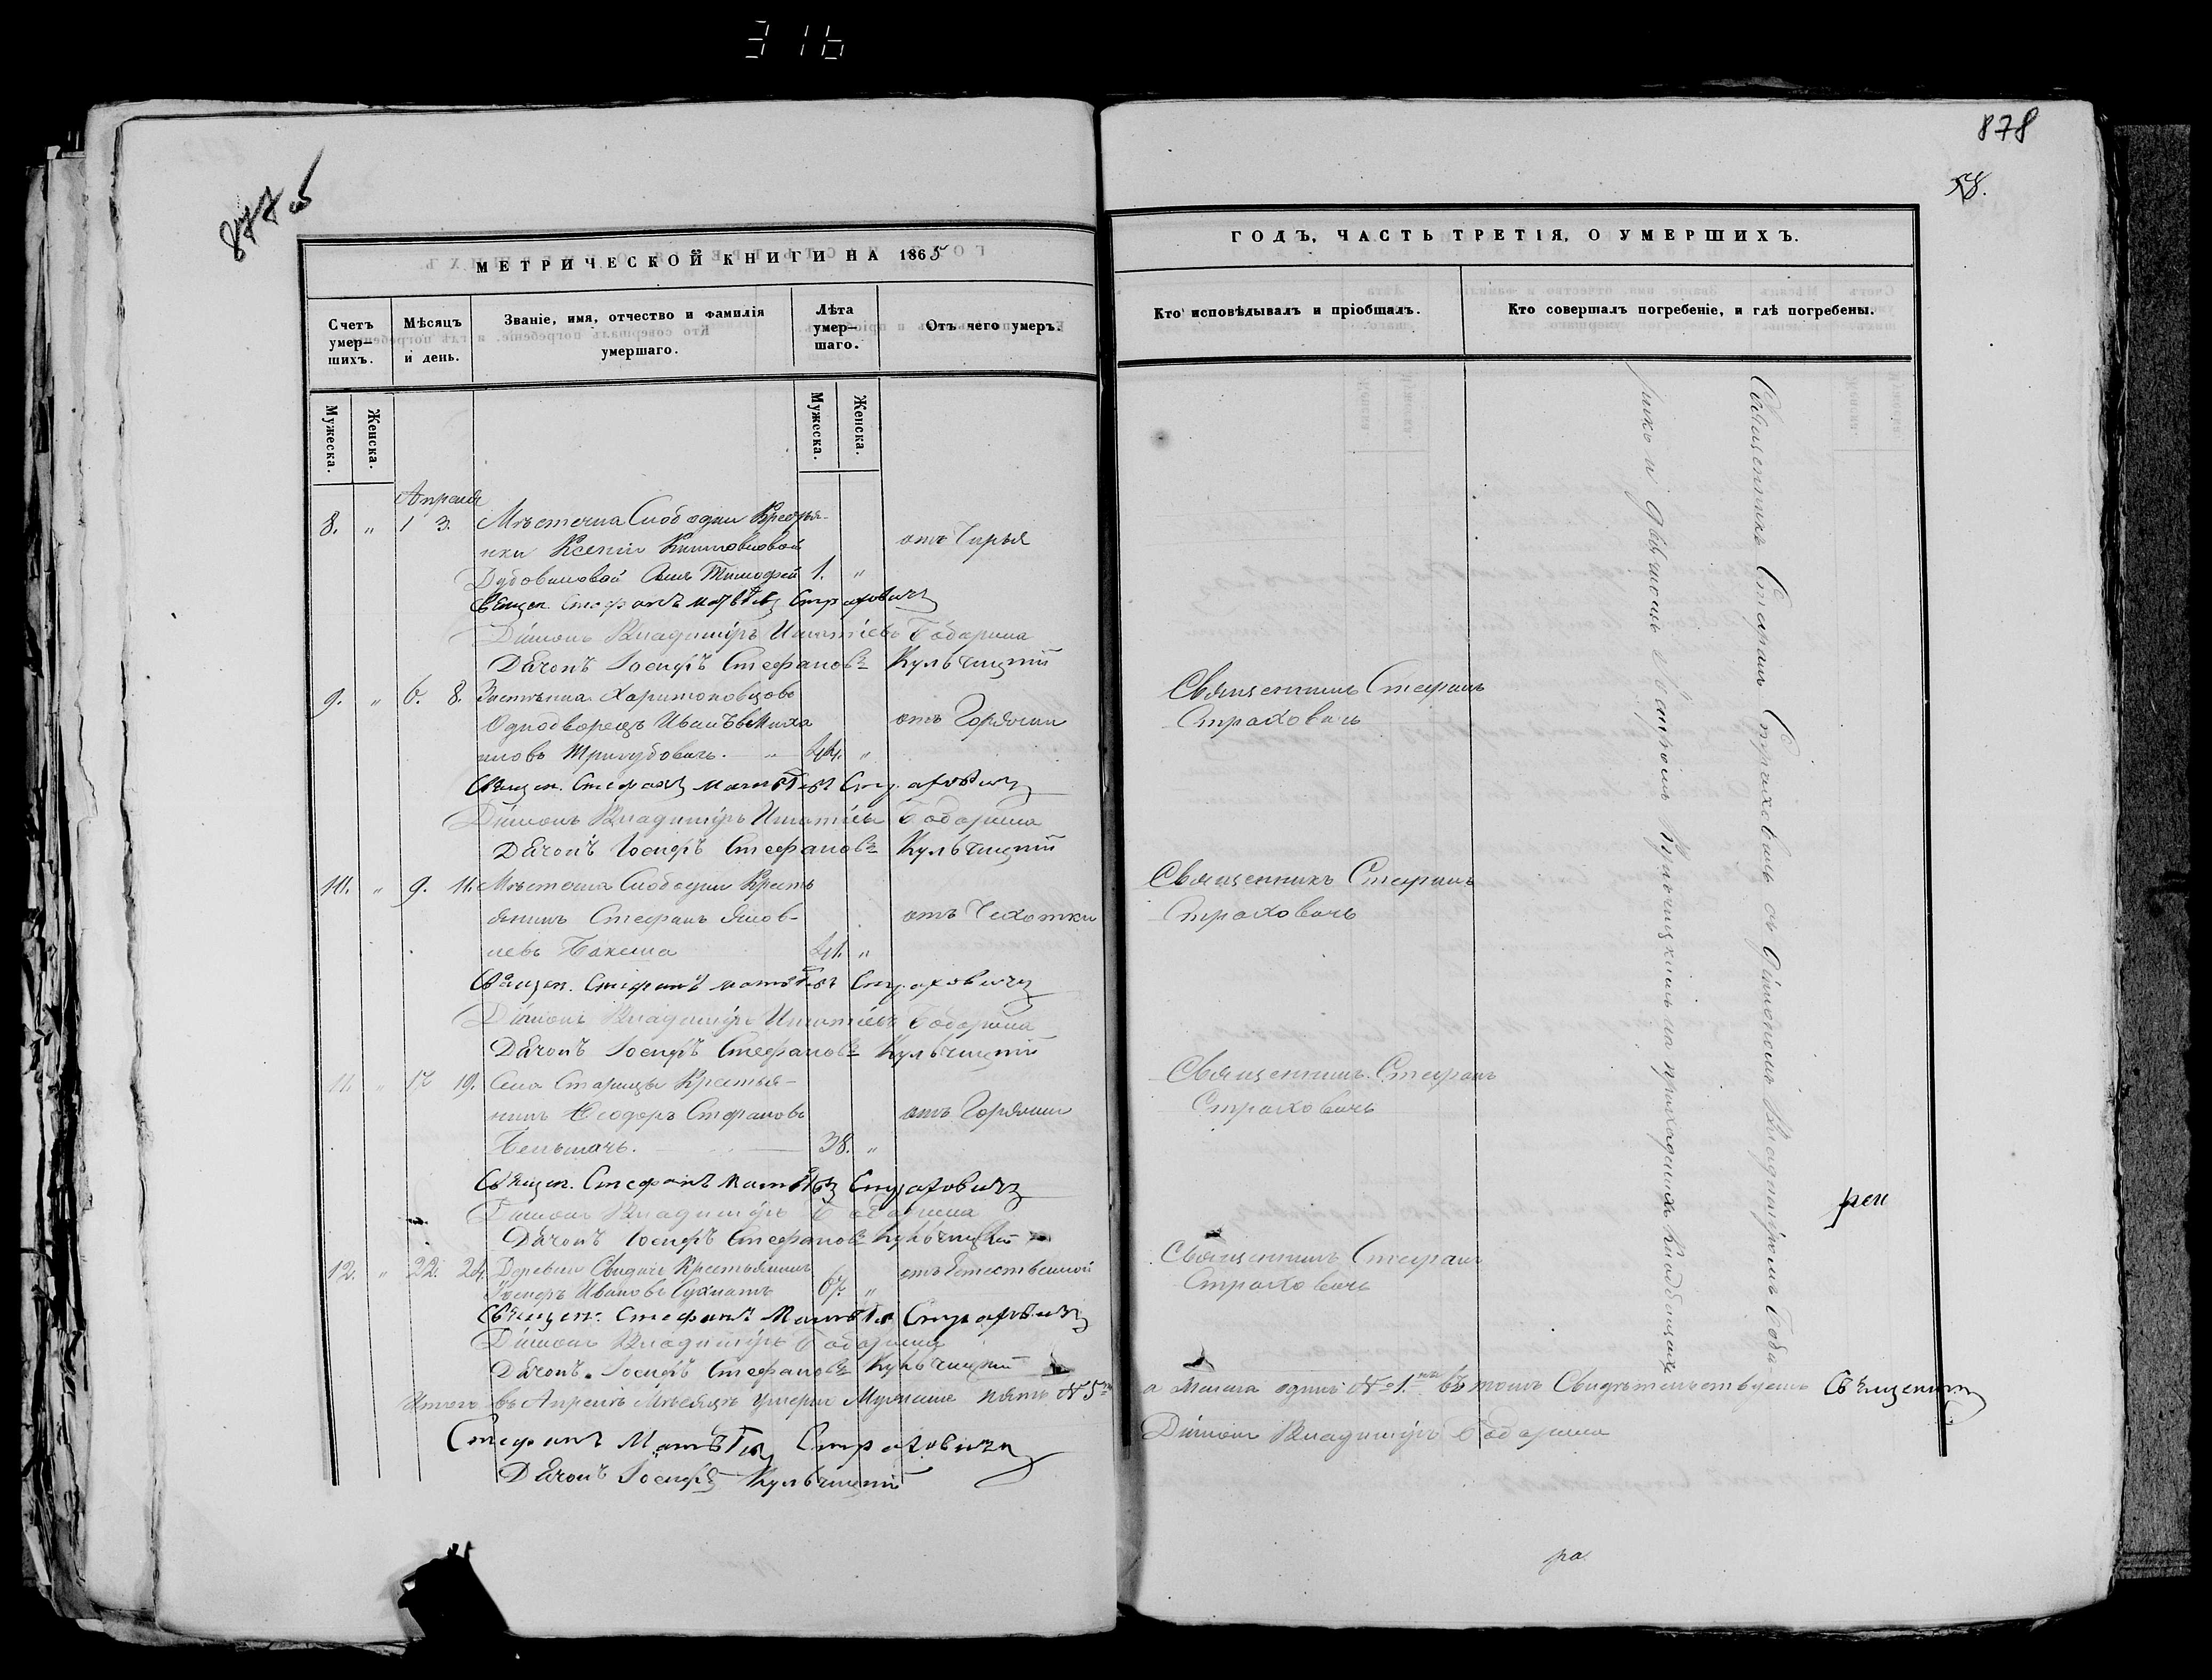 316
877 об
878
58.
МЕТРИЧЕСКОЙ КНИГИ НА 1865
ГОДЪ, ЧАСТЬ ТРЕТІЯ, О УМЕРШИХЪ.
Счетъ умер—шихъ.
Мѣсяцъ и день.
Званіе, имя, отчество и фамилія умершаго.
Лѣта умер—шаго.
Отъ чего умеръ.
Кто исповѣдывалъ и пріобщалъ.
Кто совершалъ погребеніе, и гдѣ погребены.
Мужеска.
Женска.
Мужеска.
Женска.
Апреля
8. „ 1 3. Мѣстечка Слободки Крестья-
нки Ксеніи
отъ Чирья
Сынъ Тимофей 1. „
Священ. Стефанъ Матвѣевъ Страховичъ
Діаконъ Владиміръ Игнатіевъ Бобарика
Дячокъ Іосифъ Стефановъ Кульчицкій
9. „ 6. 8. Застѣнка Харитоновцовъ
Однодворецъ Иванъ Миха
отъ Горячки
иловъ „ 44. „
Священникъ Стефанъ
Страховичъ
Священ. Стефанъ Матвѣевъ Страховичъ
Діаконъ Владиміръ Игнатіевъ Бобарика
Дячокъ Іосифъ Стефановъ Кульчицкій
10. „ 9. 11. Мѣстечка Слободки Кресть
янинъ Стефанъ Яков-
отъ Чахотки
левъ 41. „
Священникъ Стефанъ
Страховичъ
Священ. Стефанъ Матвѣевъ Страховичъ
Діаконъ Владиміръ Игнатіевъ Бобарика
Дячокъ Іосифъ Стефановъ Кульчицкій
11. „ 17 19. Села Старицы Крестья-
нинъ Ѳеодоръ Стефановъ
отъ Горячки
38. „
Священникъ Стефанъ
Страховичъ
Священ. Стефанъ Матвѣевъ Страховичъ
Діаконъ Владиміръ Бобарика
Дячокъ Іосифъ Стефановъ Кульчицкій
12. „ 22. 24. Деревни Крестьянинъ
отъ Естественной
Іосифъ Ивановъ 67. „
Священникъ Стефанъ
Страховичъ
Священ. Стефанъ Матвѣевъ Страховичъ
Діаконъ Владиміръ Бобарика
Дячокъ Іосифъ Стефановъ Кульчицкій
Итого въ Апрелѣ Мѣсяцѣ Умерло Мужчинъ пять № 5
а одинъ № 1. въ томъ Свидѣтельствуемъ Священникъ
Стефанъ Матвѣевъ Страховичъ
Діаконъ Владиміръ Бобарика
Дячокъ Іосифъ Кульчицкій
Священникъ Стефанъ Страховичъ съ Діакономъ Владиміромъ Боба
рикъ и Дячкомъ Іосифомъ Кульчицкимъ на приходскихъ Кладбищахъ
реп
ра